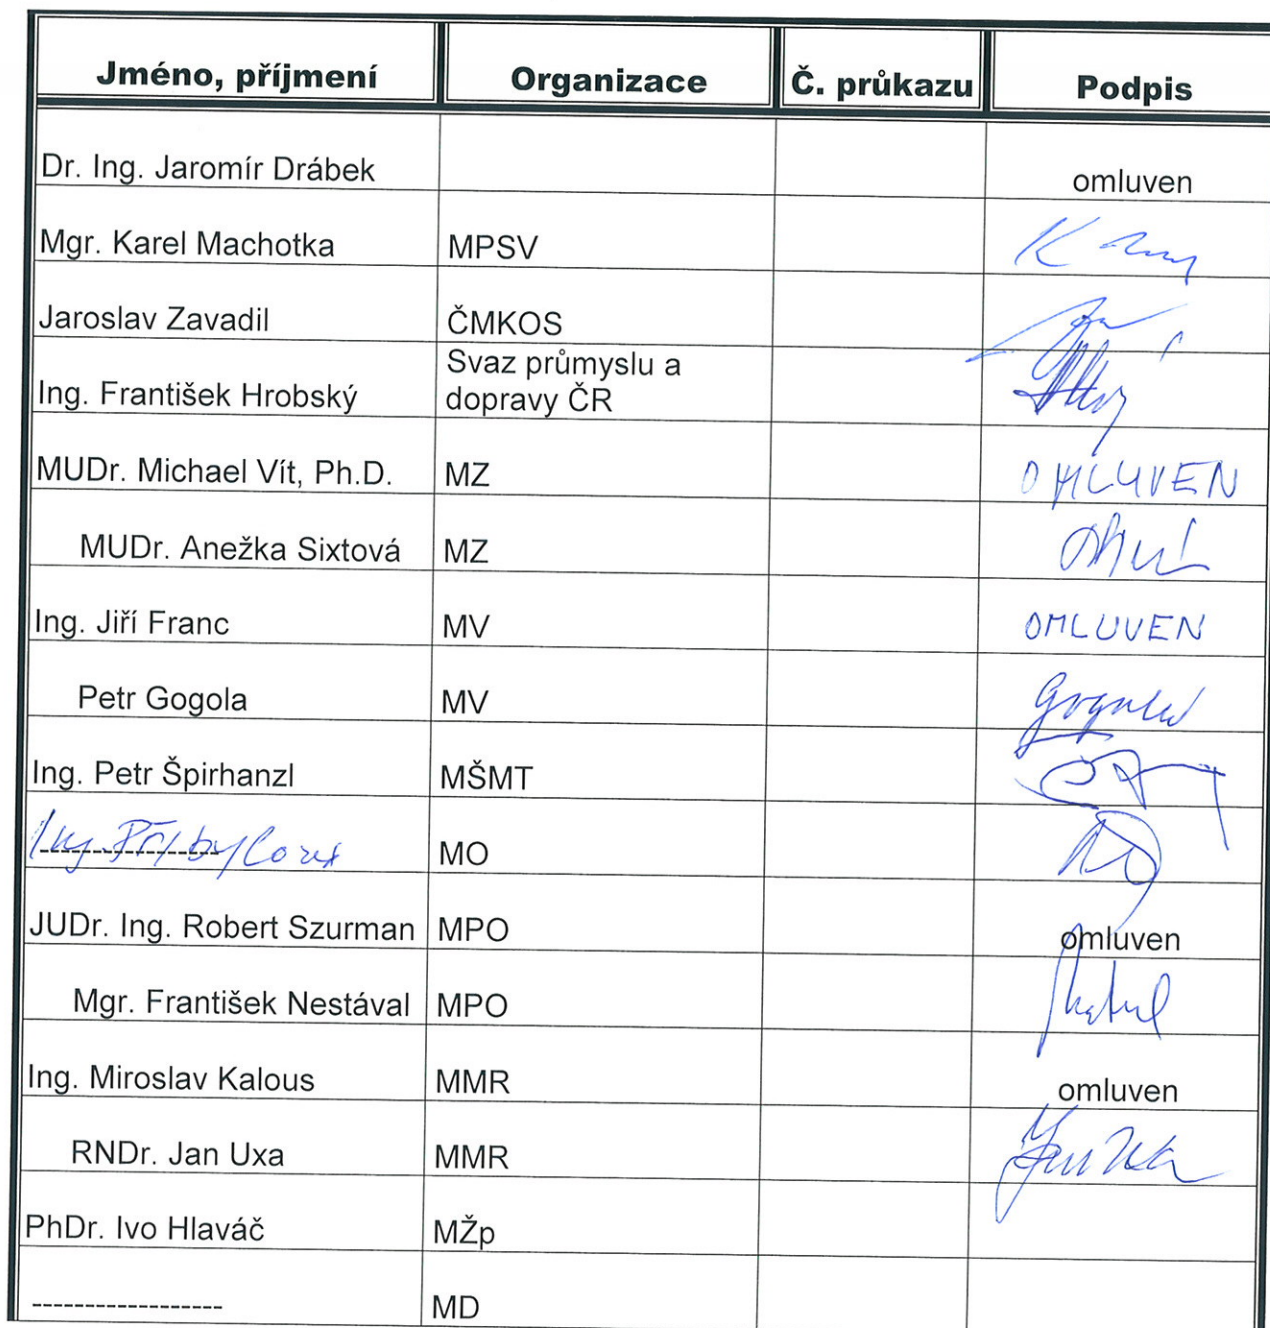 Jméno, příjmení Organizace Č. průkazu Podpis
Dr. Ing. Jaromír Drábek omluven
Mgr. Karel Machotka MPSV
Jaroslav Zavadil ČMKOS
Svaz průmyslu a
Ing. František Hrobský dopravy ČR
MUDr. Michael Vít, Ph.D. MZ OMLUVEN
MUDr. Anežka Sixtová MZ
Ing. Jiří Franc MV OMLUVEN
Petr Gogola MV Gogola
Ing. Petr Špirhanzl MŠMT
Ing. ------------------ MO
JUDr. Ing. Robert Szurman MPO omluven
Mgr. František Nestával MPO
Ing. Miroslav Kalous MMR omluven
RNDr. Jan Uxa MMR
PhDr. Ivo Hlaváč MŽp
------------------ MD